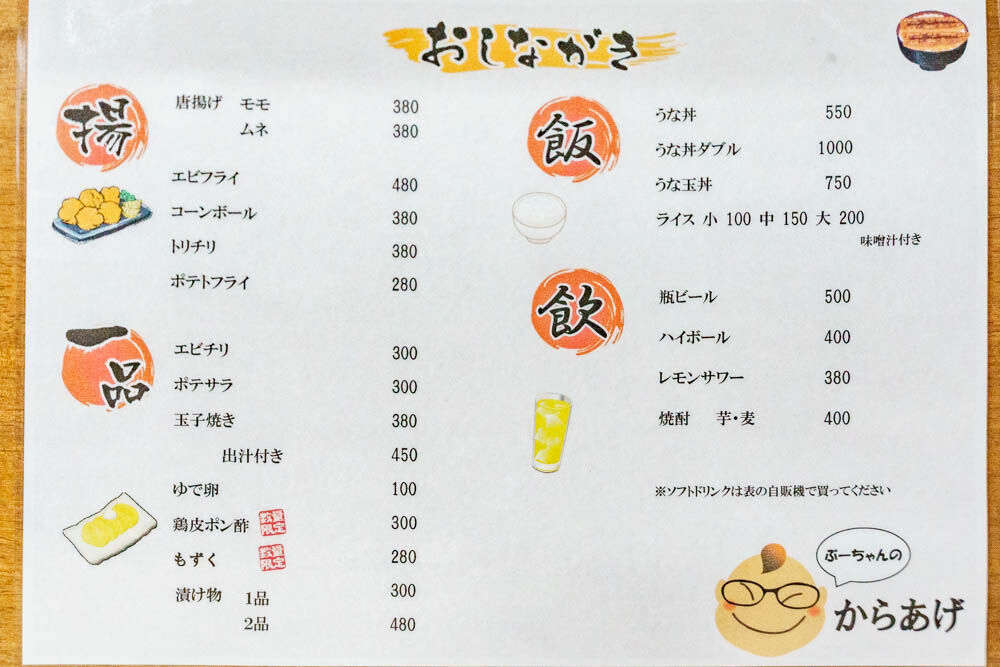 おしながき
揚
唐揚げ モモ 380
ムネ 380
エビフライ 480
コーンボール 380
トリチリ 380
ポテトフライ 280
一品
エビチリ 300
ポテサラ 300
玉子焼き 380
出汁付き 450
ゆで卵 100
鶏皮ポン酢 数量限定 300
もずく 数量限定 280
漬け物 1品 300
2品 480
飯
うな丼 550
うな丼ダブル 1000
うな玉丼 750
ライス 小 100 中 150 大 200
味噌汁付き
飲
瓶ビール 500
ハイボール 400
レモンサワー 380
焼酎 芋・麦 400
※ソフトドリンクは表の自販機で買ってください
ぶーちゃんの
からあげ